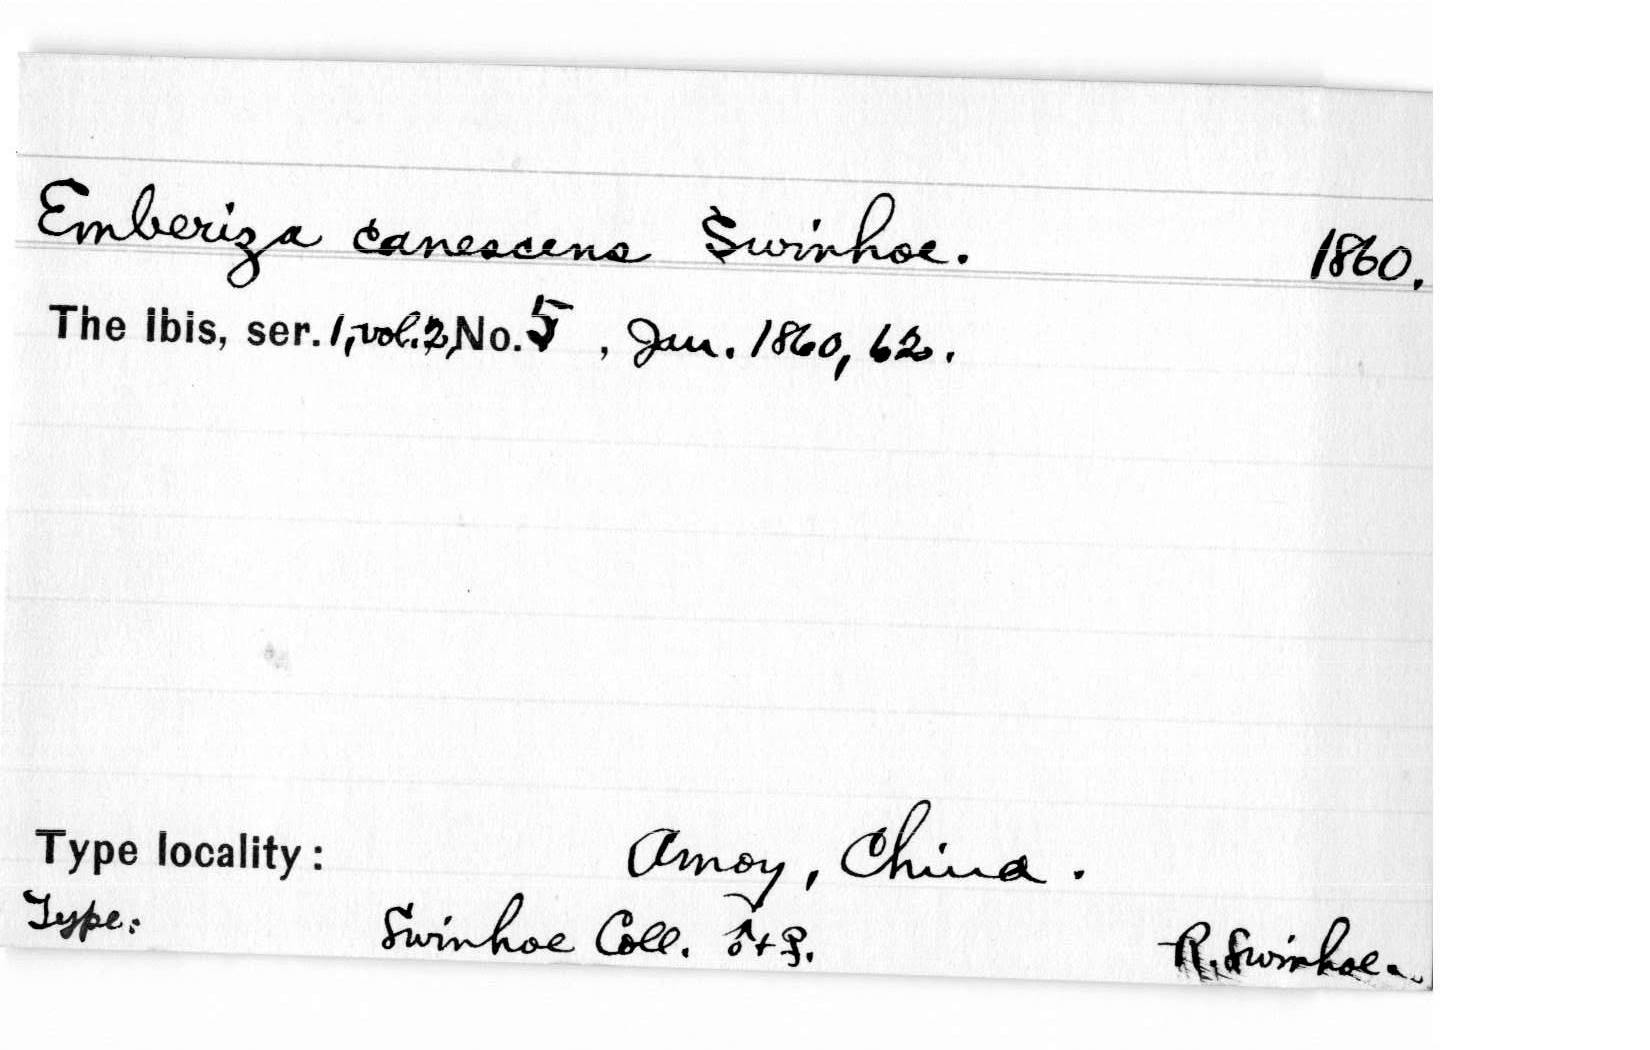 Emberiza canescens Swinhoe. 1860.
The Ibis, ser. 1, vol. 2, No. 5, Jan. 1860, 62.
Type locality: Amoy, China.
Type: Swinhoe Coll. ♂ + ♀. R. Swinhoe.